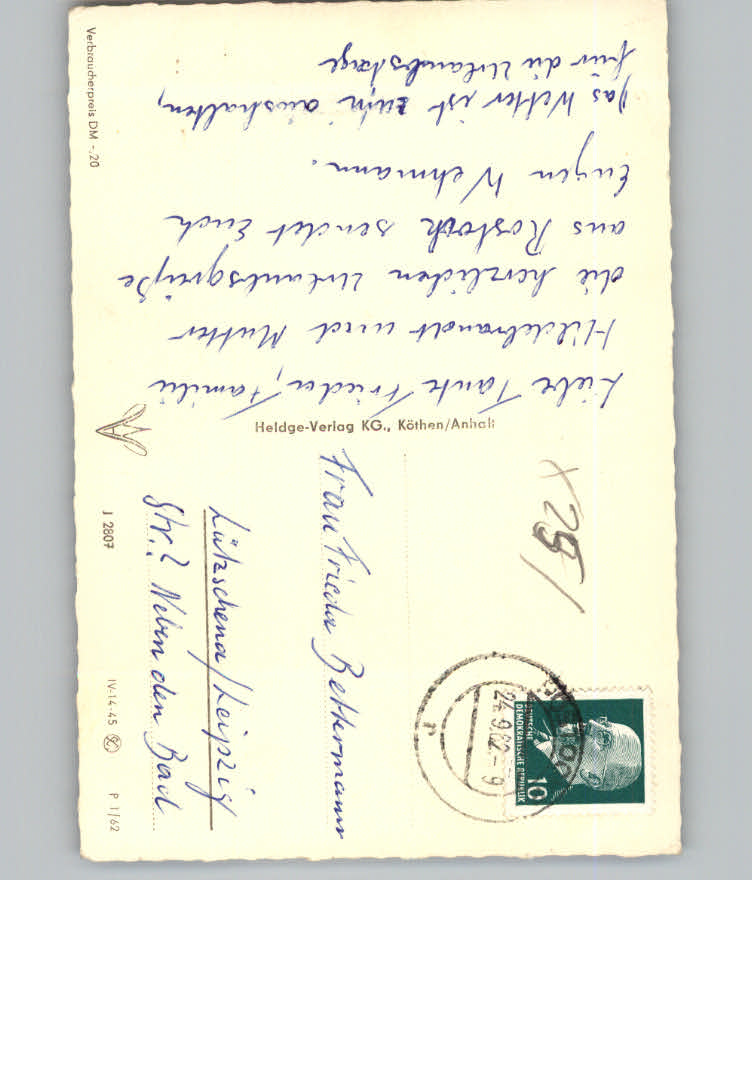 Liebe Tante Frieda, Familie
Hildebrandt und Mutter
die herzlichen Urlaubsgrüße
aus Rostock sendet Euch
Eugen Wehmann.
Das Wetter ist zum aushalten,
für die Urlaubstage
Heldge-Verlag KG., Köthen/Anhalt
Verbraucherpreis DM -,20
Frau Frieda Bethermann
Lützschena/Leipzig
Str.? Neben den Bad
J 2807
IV-14-45
P 1/62
24.9.62.-9
DEUTSCHE
DEMOKRATISCHE REPUBLIK
10